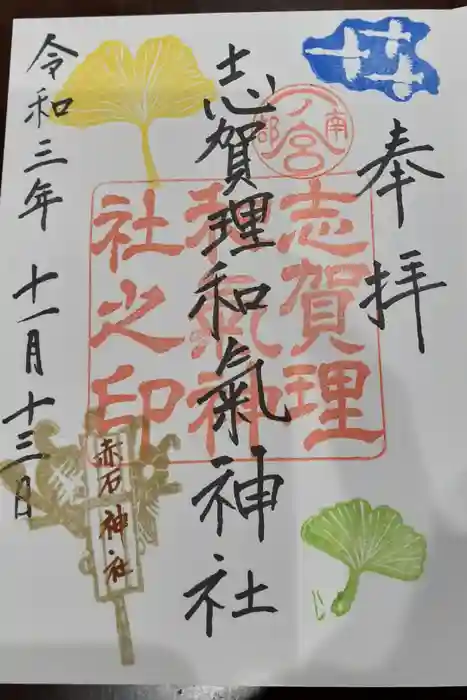 奉拝
志賀理和氣神社
令和三年 十一月十三日
志賀理
和氣神
社之印
一ノ宮
南
都
赤石神社